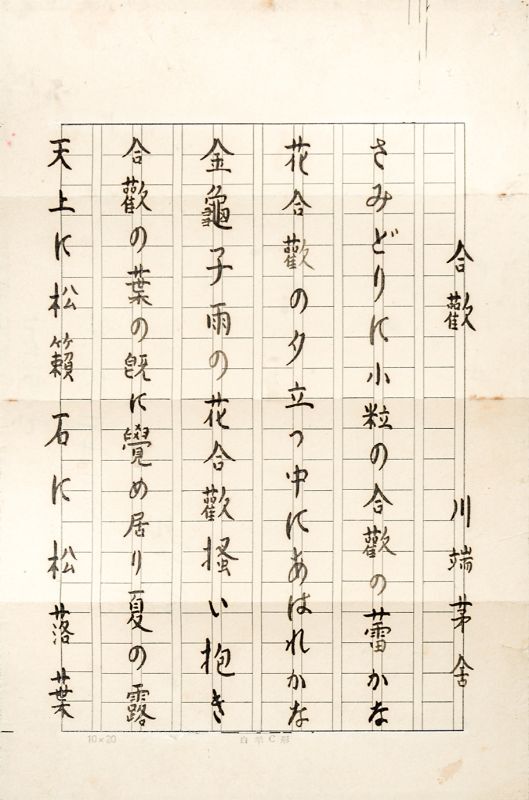 合歡 川端茅舍
さみどりに小粒の合歡の蕾かな
花合歡の夕立つ中にあはれかな
金龜子雨の花合歡掻い抱き
合歡の葉の既に覺め居り夏の露
天上に松籟石に松落葉
10×20